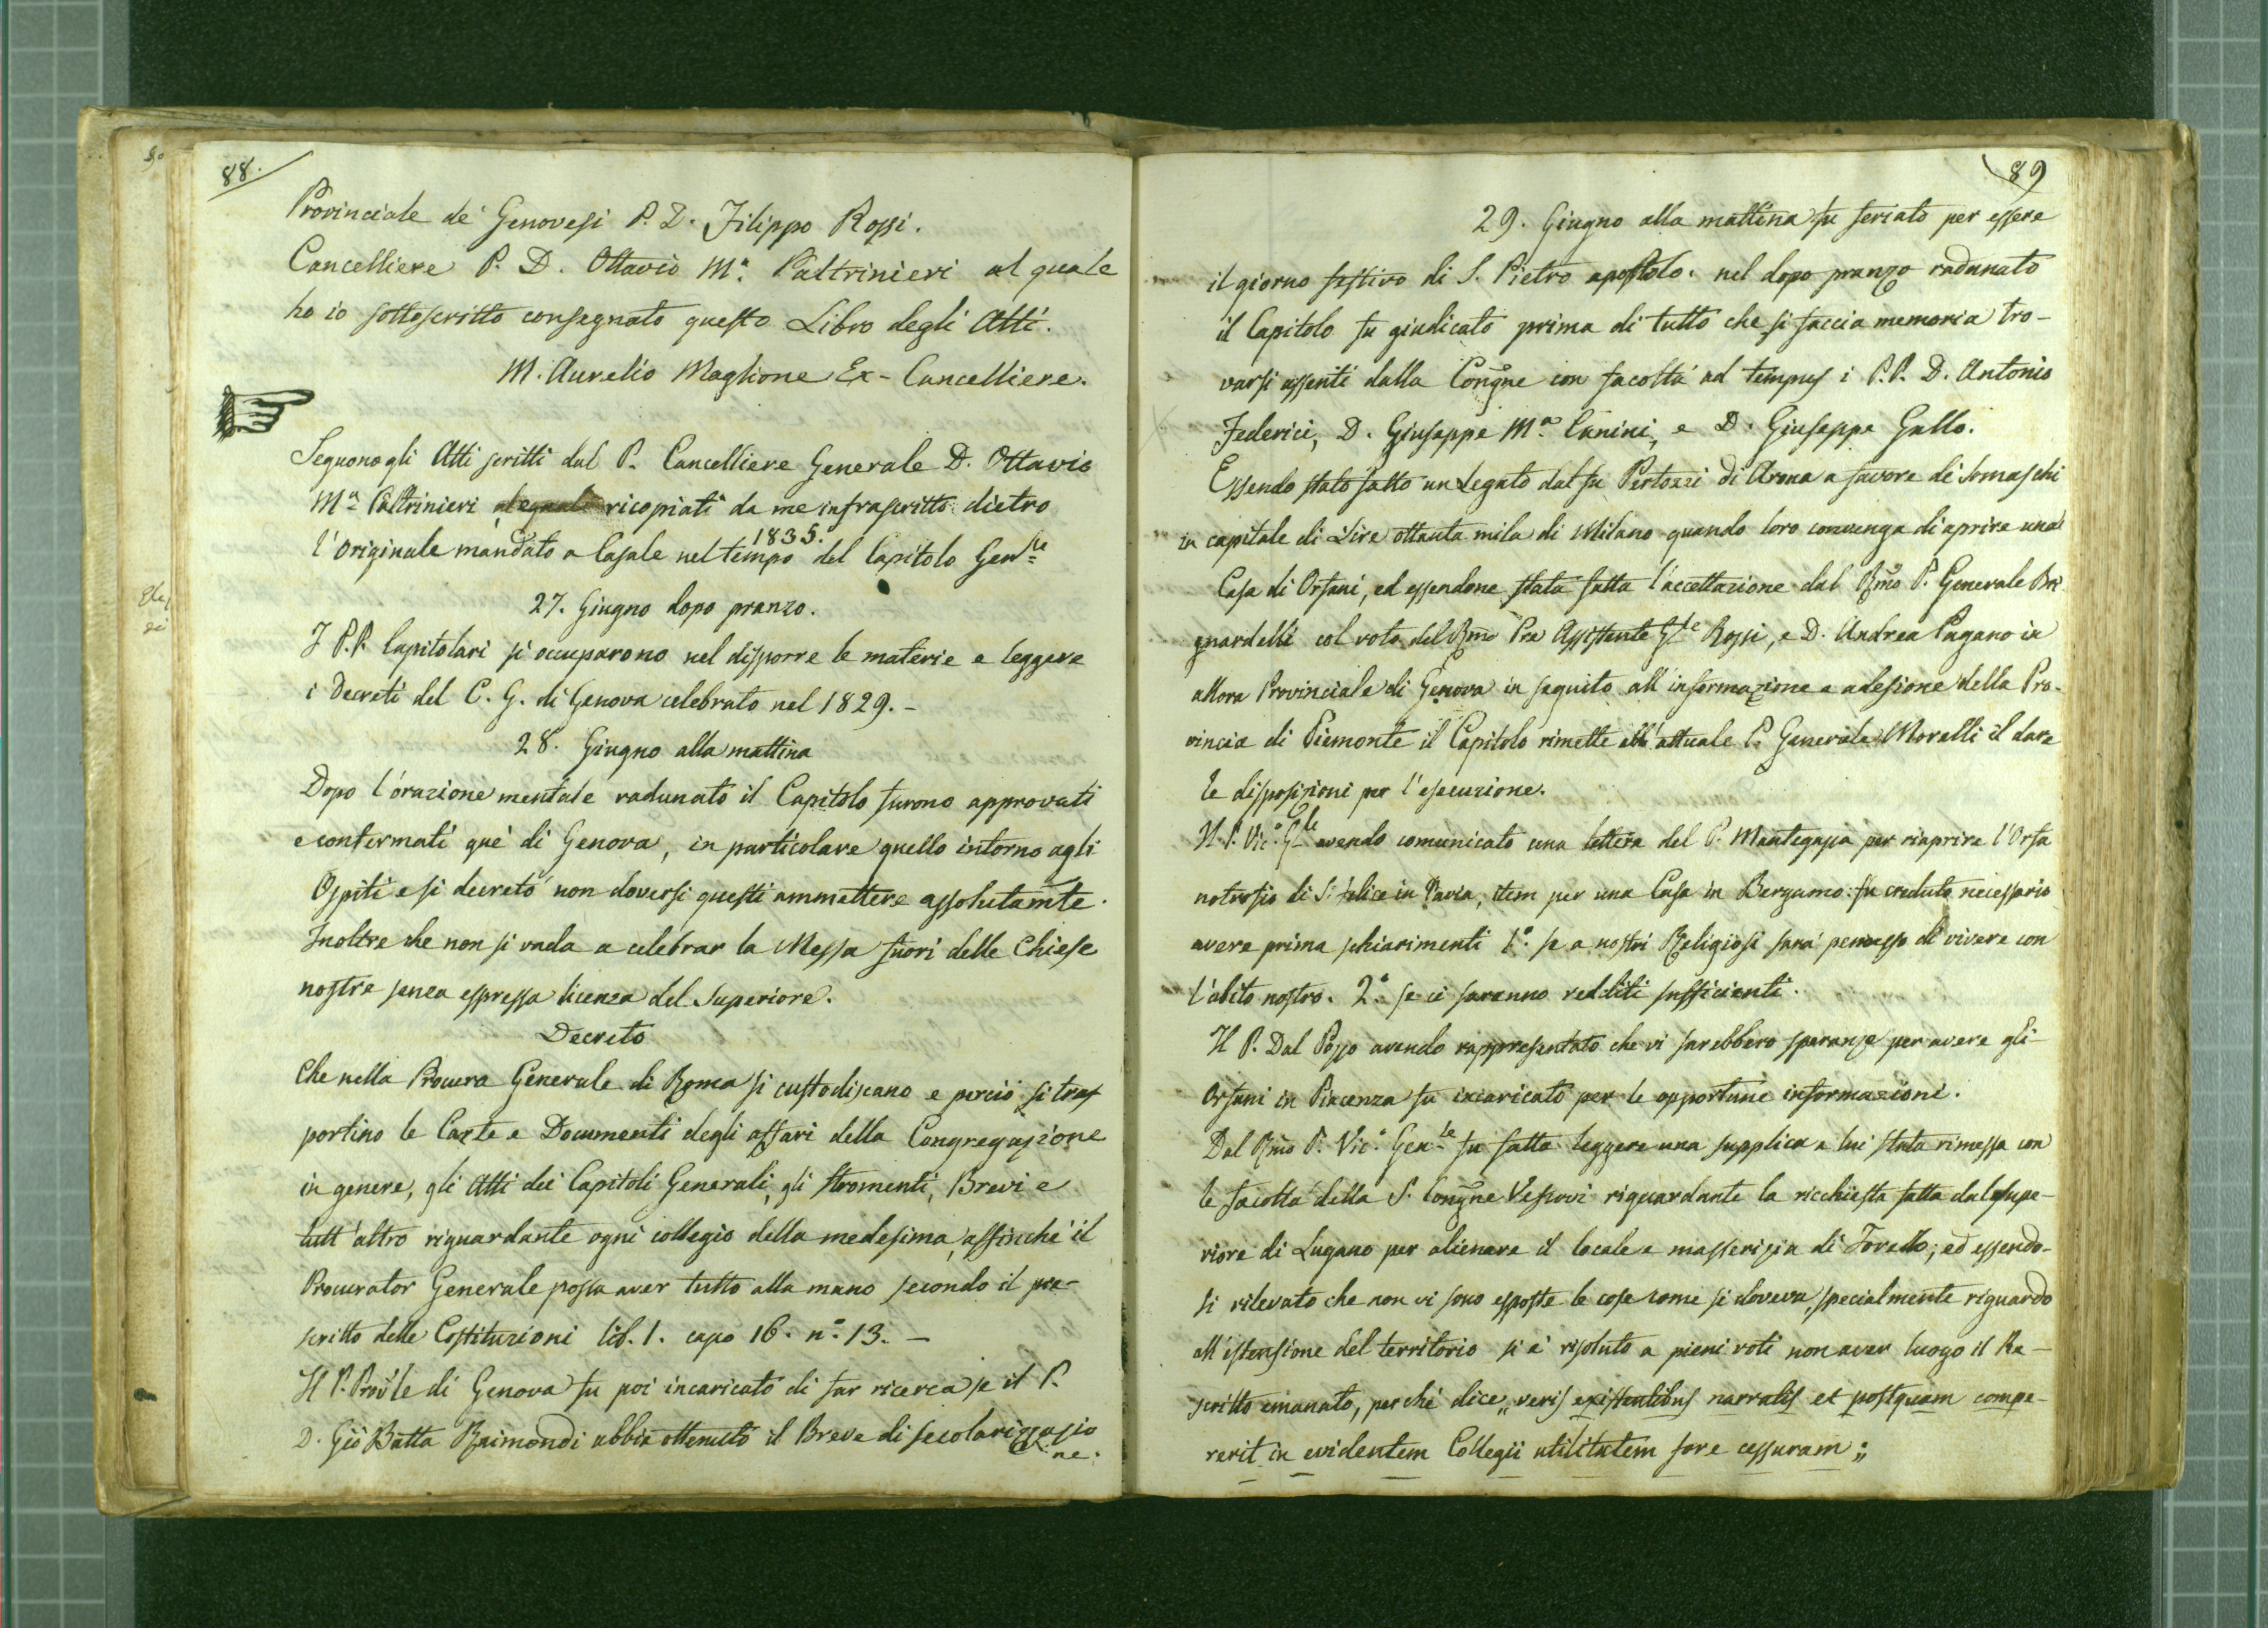 88.
Provinciale de' Genovesi P. D. Filippo Rossi.
Cancelliere P. D. Ottavio Mª. Paltrinieri al quale
ho io sottoscritto consegnato questo Libro degli Atti.
M. Aurelio Maglione Ex-Cancelliere.
Seguono gli Atti scritti dal P. Cancelliere Generale D. Ottavio
Mª Paltrinieri ricopiati da me infrascritto dietro
1835.
l'originale mandato a Casale nel tempo del Capitolo Genle
27. Giugno dopo pranzo.
I P.P. Capitolari si occuparono nel disporre le materie e leggere
i Decreti del C. G. di Genova celebrato nel 1829. -
28. Giugno alla mattina
Dopo l'orazione mentale radunato il Capitolo furono approvati
e confermati què di Genova, in particolare quello intorno agli
Ospiti e si decretò non doversi questi ammettere assolutamte.
Inoltre che non si vada a celebrar la Messa fuori delle Chiese
nostre senza espressa licenza del Superiore.
Decreto
Che nella Procura Generale di Roma si custodiscano e perciò si tras
portino le Carte e Documenti degli affari della Congregazione
in genere, gli Atti dei Capitoli Generali, gli stromenti, Brevi e
tutt'altro riguardante ogni collegio della medesima, affinchè il
Procurator Generale possa aver tutto alla mano secondo il pre-
scritto delle Costituzioni lib. 1. capo 16. n.º 13. -
Il P. Provle di Genova fu poi incaricato di far ricerca se il P.
D. Gio Batta Raimondi abbia ottenuto il Breve di secolarizzazio
ne.
89
29. Giugno alla mattina fu feriato per essere
il giorno festivo di S. Pietro apostolo. nel dopo pranzo radunato
il Capitolo fu giudicato prima di tutto che si faccia memoria tro-
varsi assenti dalla Congne con facoltà ad tempus i P.P. D. Antonio
Federici, D. Giuseppe Mª. Canini, e D. Giuseppe Gallo.
Essendo stato fatto un Legato dal fu Pertozzi di Arona a favore de' Somaschi
in capitale di Lire ottanta mila di Milano quando loro convenga di aprire una
Casa di Orfani, ed essendone stata fatta l'accettazione dal Rmo P. Generale Bri
gnardelli col voto del Rmo Pre Assistente Gle Rossi, e D. Andrea Pagano in
allora Provinciale di Genova in seguito all'informazione e adesione della Pro-
vincia di Piemonte il Capitolo rimette all'attuale P. Generale Morelli il dare
le disposizioni per l'esecuzione.
Il P. Vic.º Gle avendo comunicato una lettera del P. Mantegazza per riaprire l'Orfa
notrofio di S. Felice in Pavia, item per una Casa in Bergamo: fu creduto necessario
avere prima schiarimenti 1.º se a nostri Religiosi sarà permesso di vivere con
l'abito nostro. 2.º se ci saranno redditi sufficienti.
Il P. Dal Pozzo avendo rappresentato che vi sarebbero speranze per avere gli
Orfani in Piacenza fu incaricato per le opportune informazioni.
Dal Rmo P. Vic.º Genle fu fatta leggere una supplica a lui stata rimessa con
le facoltà della S. Congne Vescovi riguardante la ricchiesta fatta dal Supe-
riore di Lugano per alienare il locale e masserizia di Torello; ed essendo-
si rilevato che non vi sono esposte le cose come si doveva, specialmente riguardo
all'estensione del territorio si è risoluto a pieni voti non aver luogo il Re-
scritto emanato, perchè dice „veris existentibus narratis et postquam compe-
rerit in evidentem Collegii utilitatem fore cessuram„